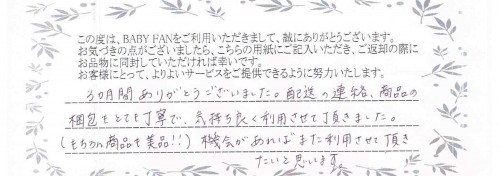 この度は、BABY FANをご利用いただきまして、誠にありがとうございます。
お気づきの点がございましたら、こちらの用紙にご記入いただき、ご返却の際に
お品物に同封していただければ幸いです。
お客様にとって、よりよいサービスをご提供できるように努力いたします。
3カ月間ありがとうございました。配送の連絡、商品の
梱包もとても丁寧で、気持ち良く利用させて頂きました。
(もちろん商品も美品!!) 機会があればまた利用させて頂き
たいと思います。